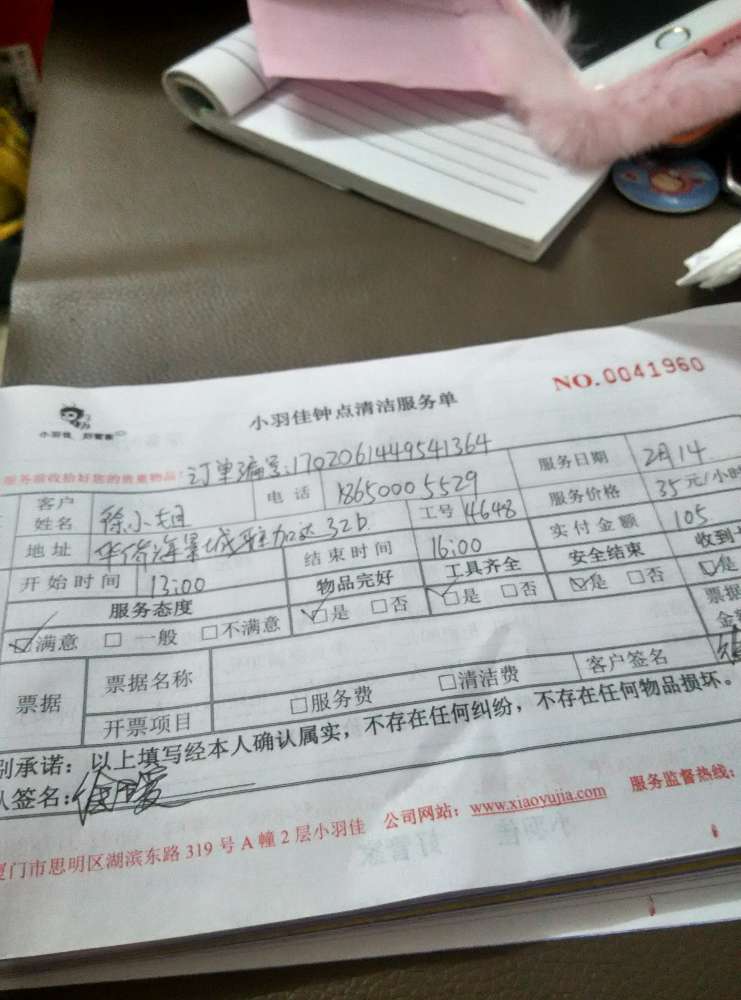 小羽佳 好管家
小羽佳钟点清洁服务单
NO.0041960
服务前收拾好您的贵重物品! 订单编号:1702061449541364
客户姓名 徐小姐 电话 18650005529 服务日期 2月14
地址 华侨海景城 32D 工号 4648 服务价格 35元/小时
开始时间 13:00 结束时间 16:00 实付金额 105
服务态度 物品完好 工具齐全 安全结束 收到
☑满意 □一般 □不满意 ☑是 □否 ☑是 □否 ☑是 □否 ☑是
票据 票据名称 客户签名 票据
开票项目 □服务费 □清洁费
别承诺：以上填写经本人确认属实，不存在任何纠纷，不存在任何物品损坏。
人签名:
厦门市思明区湖滨东路319号A幢2层小羽佳 公司网站：www.xiaoyujia.com 服务监督热线：